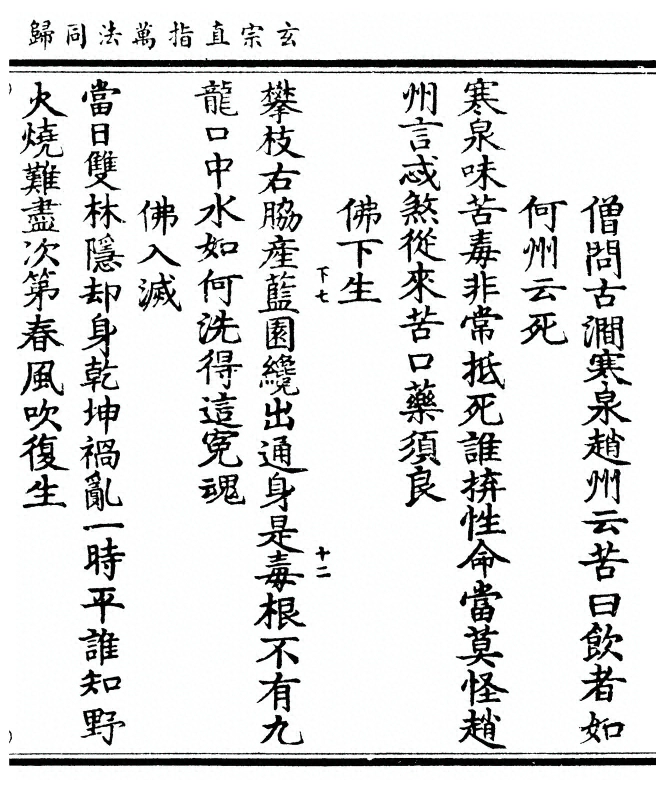 玄宗直指萬法同歸
僧問古澗寒泉趙州云苦曰飲者如
何州云死
寒泉味苦毒非常抵死誰拚性命當莫怪趙
州言忒煞從來苦口藥須良
佛下生
下七
十二
攀枝右脇產藍園纔出通身是毒根不有九
龍口中水如何洗得這寃魂
佛入滅
當日雙林隱却身乾坤禍亂一時平誰知野
火燒難盡次第春風吹復生